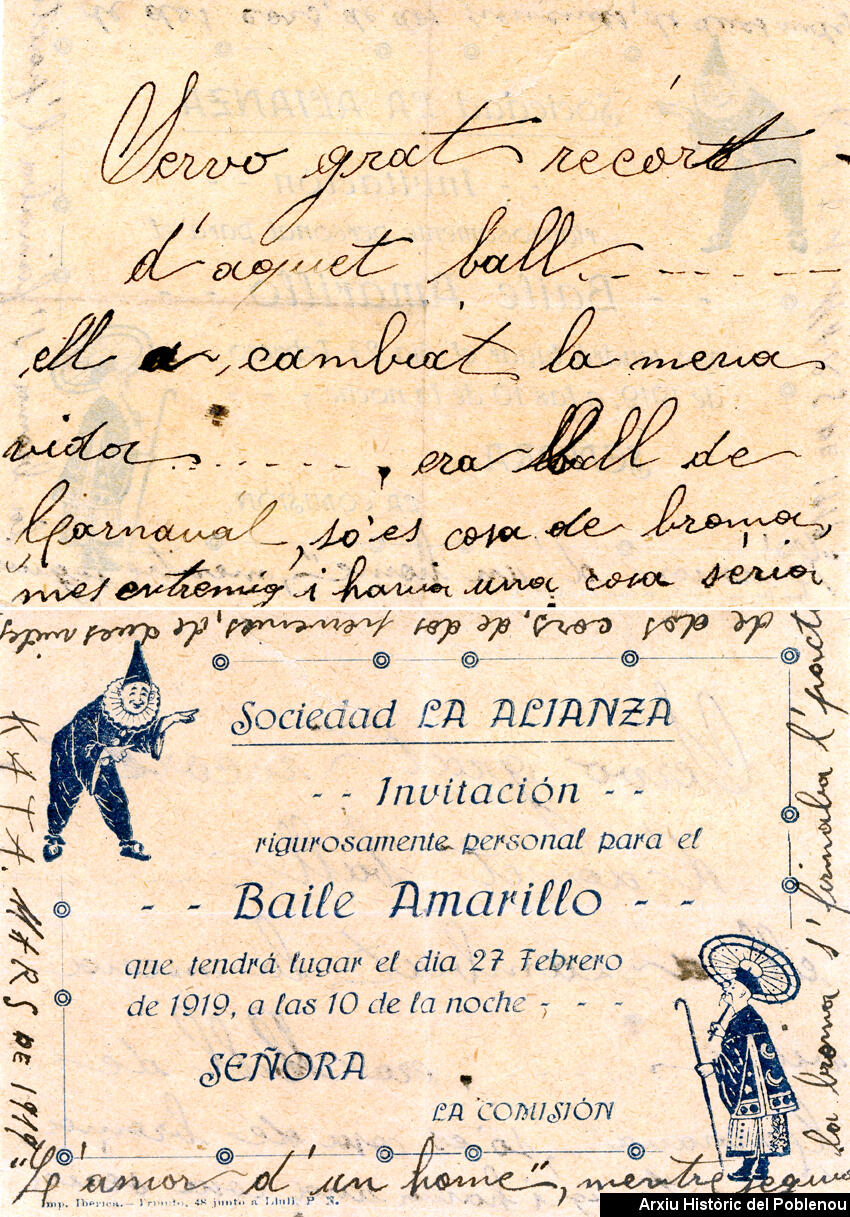 Servo grat recórt
d'aquet ball.. - - - - - -
ell a, cambiat la meva
vida . . . . . . . , era ball de
Carnaval, só es cosa de broma,
mes entremig i havia una cosa séria
de dos cors, de dos jovenets, de dues vides
Sociedad LA ALIANZA
- - Invitación - -
rigurosamente personal para el
- - Baile Amarillo - -
que tendrá lugar el dia 27 Febrero
de 1919, a las 10 de la noche - - -
SEÑORA
LA COMISIÓN
KATA. MARS DE 1919
"L'amor d'un home", mentre seguia
la broma s'firmaba l'pacte
Imp. Ibérica.— Triunfo, 48 junto a Llull. P. N.
Arxiu Històric del Poblenou